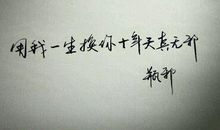 用我一生换你十年天真无邪
瓶邪